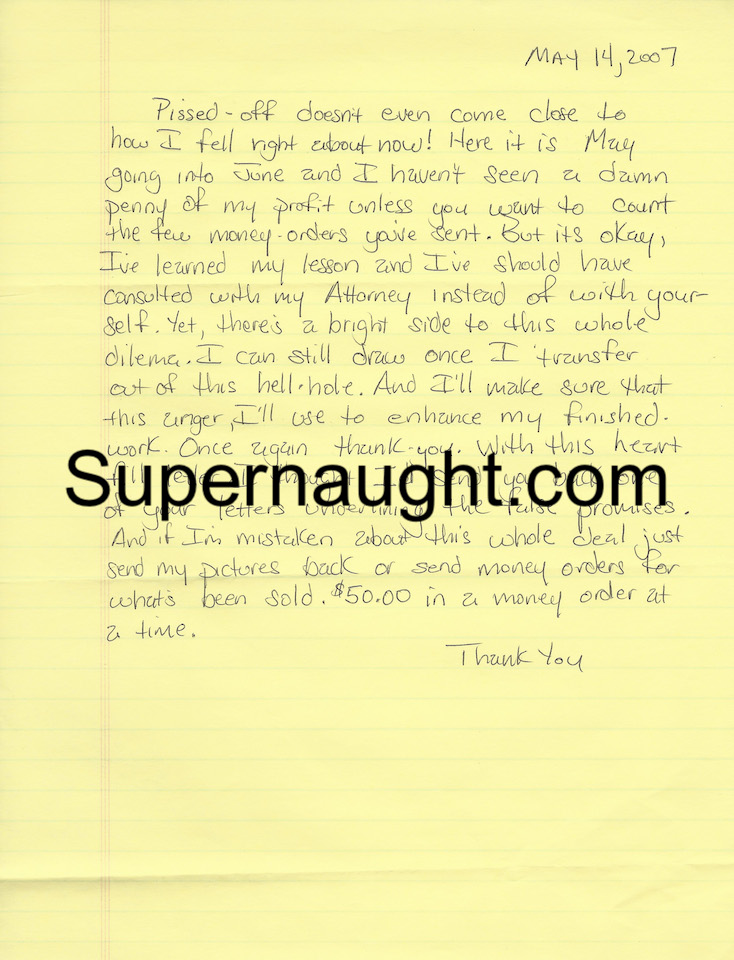 MAY 14, 2007
Pissed-off doesn't even come close to
how I fell right about now! Here it is May
going into June and I haven't seen a damn
penny of my profit unless you want to count
the few money-orders you've sent. But its okay,
I've learned my lesson and I've should have
consulted with my Attorney instead of with your-
self. Yet, there's a bright side to this whole
dilema. I can still draw once I transfer
out of this hell-hole. And I'll make sure that
this anger, I'll use to enhance my finished.
work. Once again thank-you. With this heart
I thought I'd send you back one
Supernaught.com
of your letters underlining the false promises.
And if I'm mistaken about this whole deal just
send my pictures back or send money orders for
what's been sold. $50.00 in a money order at
a time.
Thank You